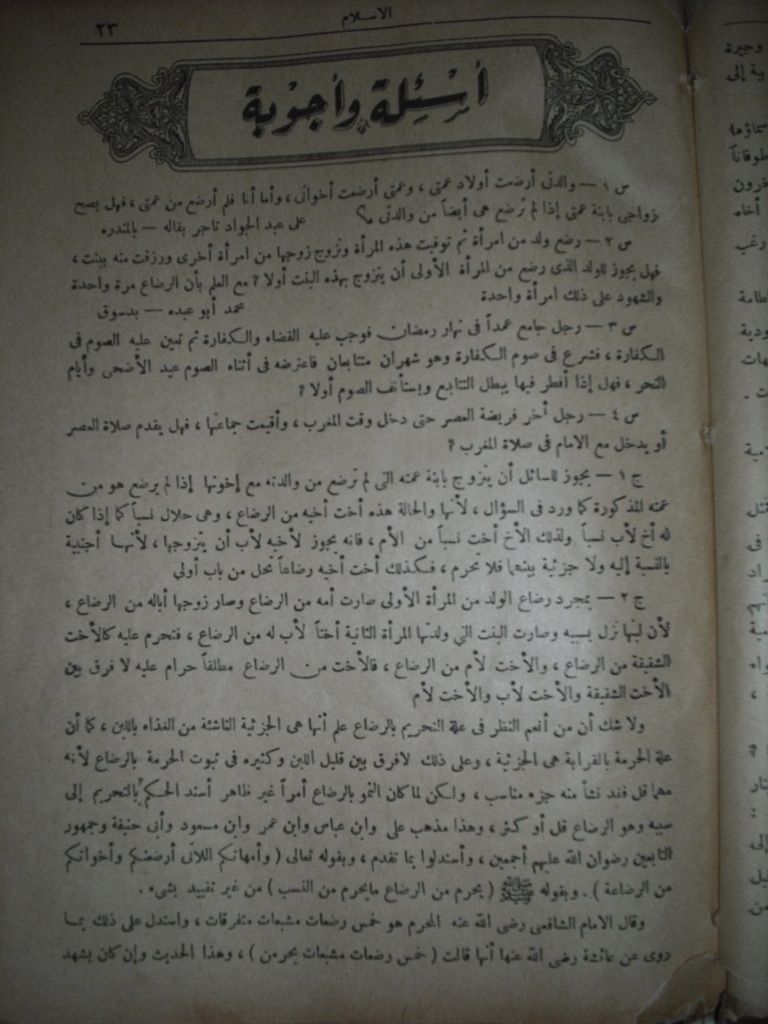 الاسلام
٢٣
أسئلة وأجوبة
س ١ — والدتى أرضعت أولاد عمتى ، وعمتى أرضعت أخوانى ، وأما أنا فلم أرضع من عمتى ، فهل يصح
زواجى بابنة عمتى إذا لم ترضع هى أيضاً من والدتى ؟ على عبد الجواد تاجر بقاله — بالمندره
س ٢ — رضع ولد من امرأة ثم توفيت هذه المرأة وتزوج زوجها من امرأة أخرى ورزقت منه ببنت ،
فهل يجوز للولد الذى رضع من المرأة الأولى أن يتزوج بهذه البنت أولا ؟ مع العلم بأن الرضاع مرة واحدة
والشهود على ذلك امرأة واحدة محمد أبو عبده — بدسوق
س ٣ — رجل جامع عمداً فى نهار رمضان فوجب عليه القضاء والكفارة ثم تعين عليه الصوم فى
الكفارة ، فشرع فى صوم الكفارة وهو شهران متتابعان فاعترضه فى أثناء الصوم عيد الأضحى وأيام
النحر ، فهل إذا أفطر فيها يبطل التتابع ويستأنف الصوم أولا ؟
س ٤ — رجل أخر فريضة العصر حتى دخل وقت المغرب ، وأقيمت جماعتها ، فهل يقدم صلاة العصر
أو يدخل مع الامام فى صلاة المغرب ؟
ج ١ — يجوز للسائل أن يتزوج بابنة عمته التى لم ترضع من والدته مع إخوتها إذا لم يرضع هو من
عمته المذكورة كما ورد فى السؤال ، لأنها والحالة هذه أخت أخيه من الرضاع ، وهى حلال نسباً كما إذا كان
له أخ لأب نسباً ولذلك الأخ أخت نسباً من الأم ، فانه يجوز لأخيه لأب أن يتزوجها ، لأنها أجنبية
بالنسبة إليه ولا جزئية بينهما فلا تحرم ، فكذلك أخت أخيه رضاعاً تحل من باب أولى
ج ٢ — بمجرد رضاع الولد من المرأة الأولى صارت أمه من الرضاع وصار زوجها أباله من الرضاع ،
لأن لبنها نزل بسببه وصارت البنت التي ولدتها المرأة الثانية أختاً لأب له من الرضاع ، فتحرم عليه كالأخت
الشقيقة من الرضاع ، والأخت لأم من الرضاع ، فالأخت من الرضاع مطلقاً حرام عليه لا فرق بين
الأخت الشقيقة والأخت لأب والأخت لأم
ولا شك أن من أنعم النظر فى علة التحريم بالرضاع علم أنها هى الجزئية الناشئة من الغذاء باللبن ، كما أن
علة الحرمة بالقرابة هى الجزئية ، وعلى ذلك لافرق بين قليل اللبن وكثيره فى ثبوت الحرمة بالرضاع لأنه
مهما قل فقد نشأ منه جزء مناسب ، ولكن لما كان النمو بالرضاع أمراً غير ظاهر أسند الحكم بالتحريم إلى
سببه وهو الرضاع قل أو كثر ، وهذا مذهب على وابن عباس وابن عمر وابن مسعود وأبى حنيفة وجمهور
التابعين رضوان الله عليهم أجمعين ، وأستدلوا بما تقدم ، وبقوله تعالى ( وأمهاتكم اللاتى أرضعنكم وأخواتكم
من الرضاعة ) . وبقوله ﷺ ( يحرم من الرضاع مايحرم من النسب ) من غير تقييد بشىء .
وقال الامام الشافعى رضى الله عنه المحرم هو خمس رضعات مشبعات متفرقات ، واستدل على ذلك بما
روى عن عائشة رضى الله عنها أنها قالت ( خمس رضعات مشبعات يحرمن ) ، وهذا الحديث وإن كان يشهد